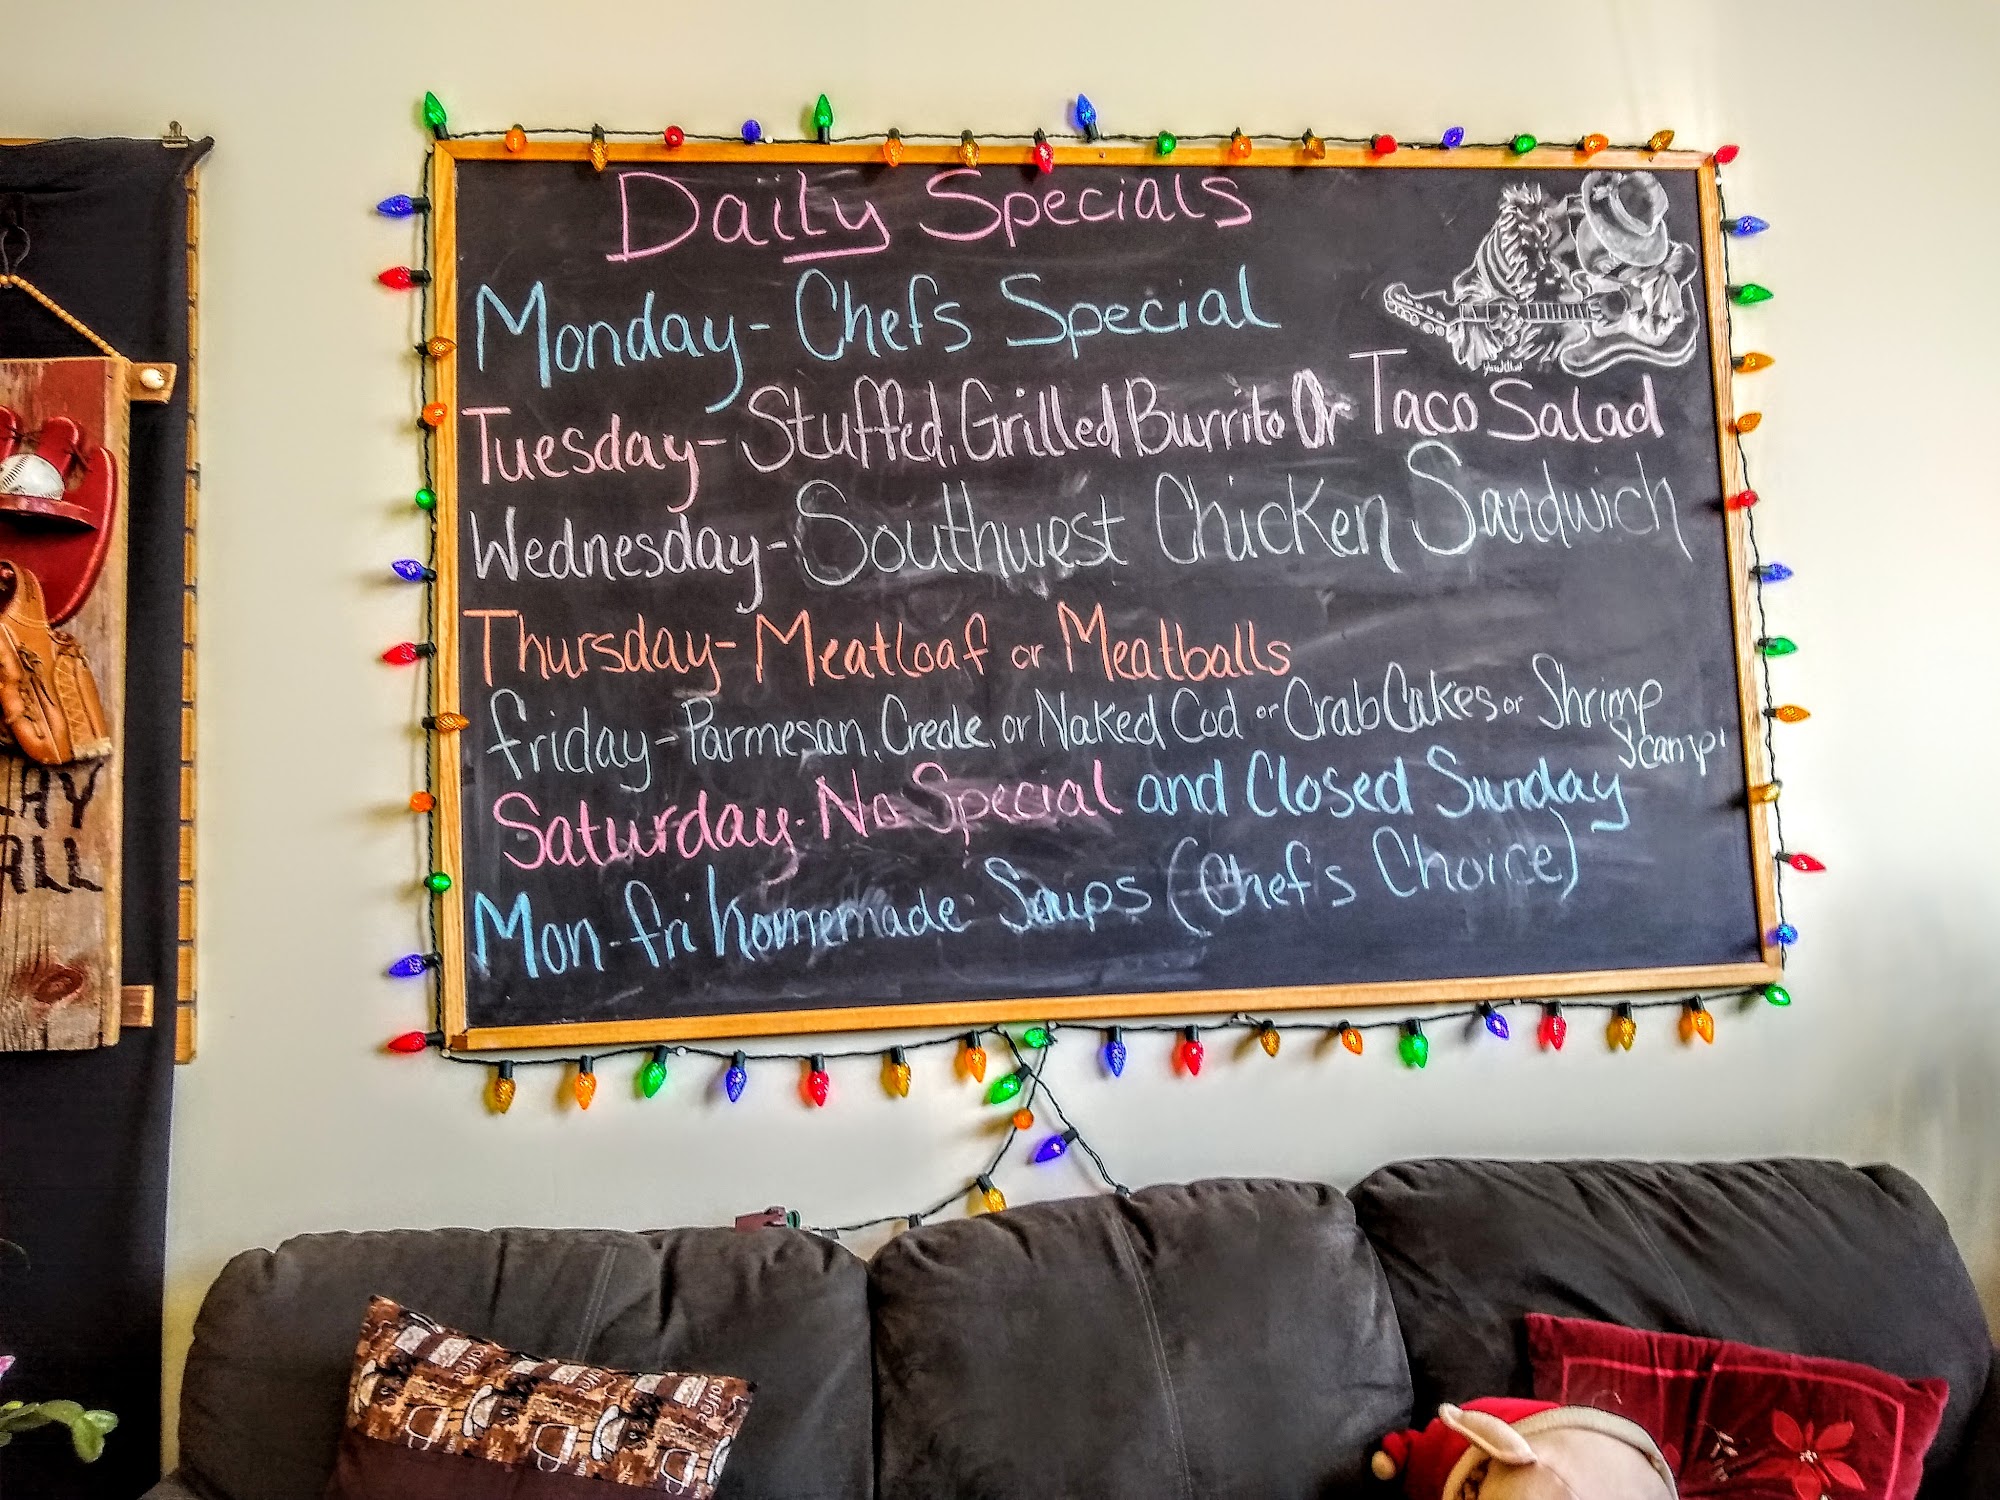 Daily Specials
Monday- Chefs Special
Tuesday- Stuffed, Grilled Burrito Or Taco Salad
Wednesday- Southwest Chicken Sandwich
Thursday- Meatloaf or Meatballs
friday- Parmesan, Creole, or Naked Cod or Crab Cakes or Shrimp
Scampi
Saturday- No Special and Closed Sunday
Mon-fri homemade Soups (Chef's Choice)
LAY
ALL
coffee